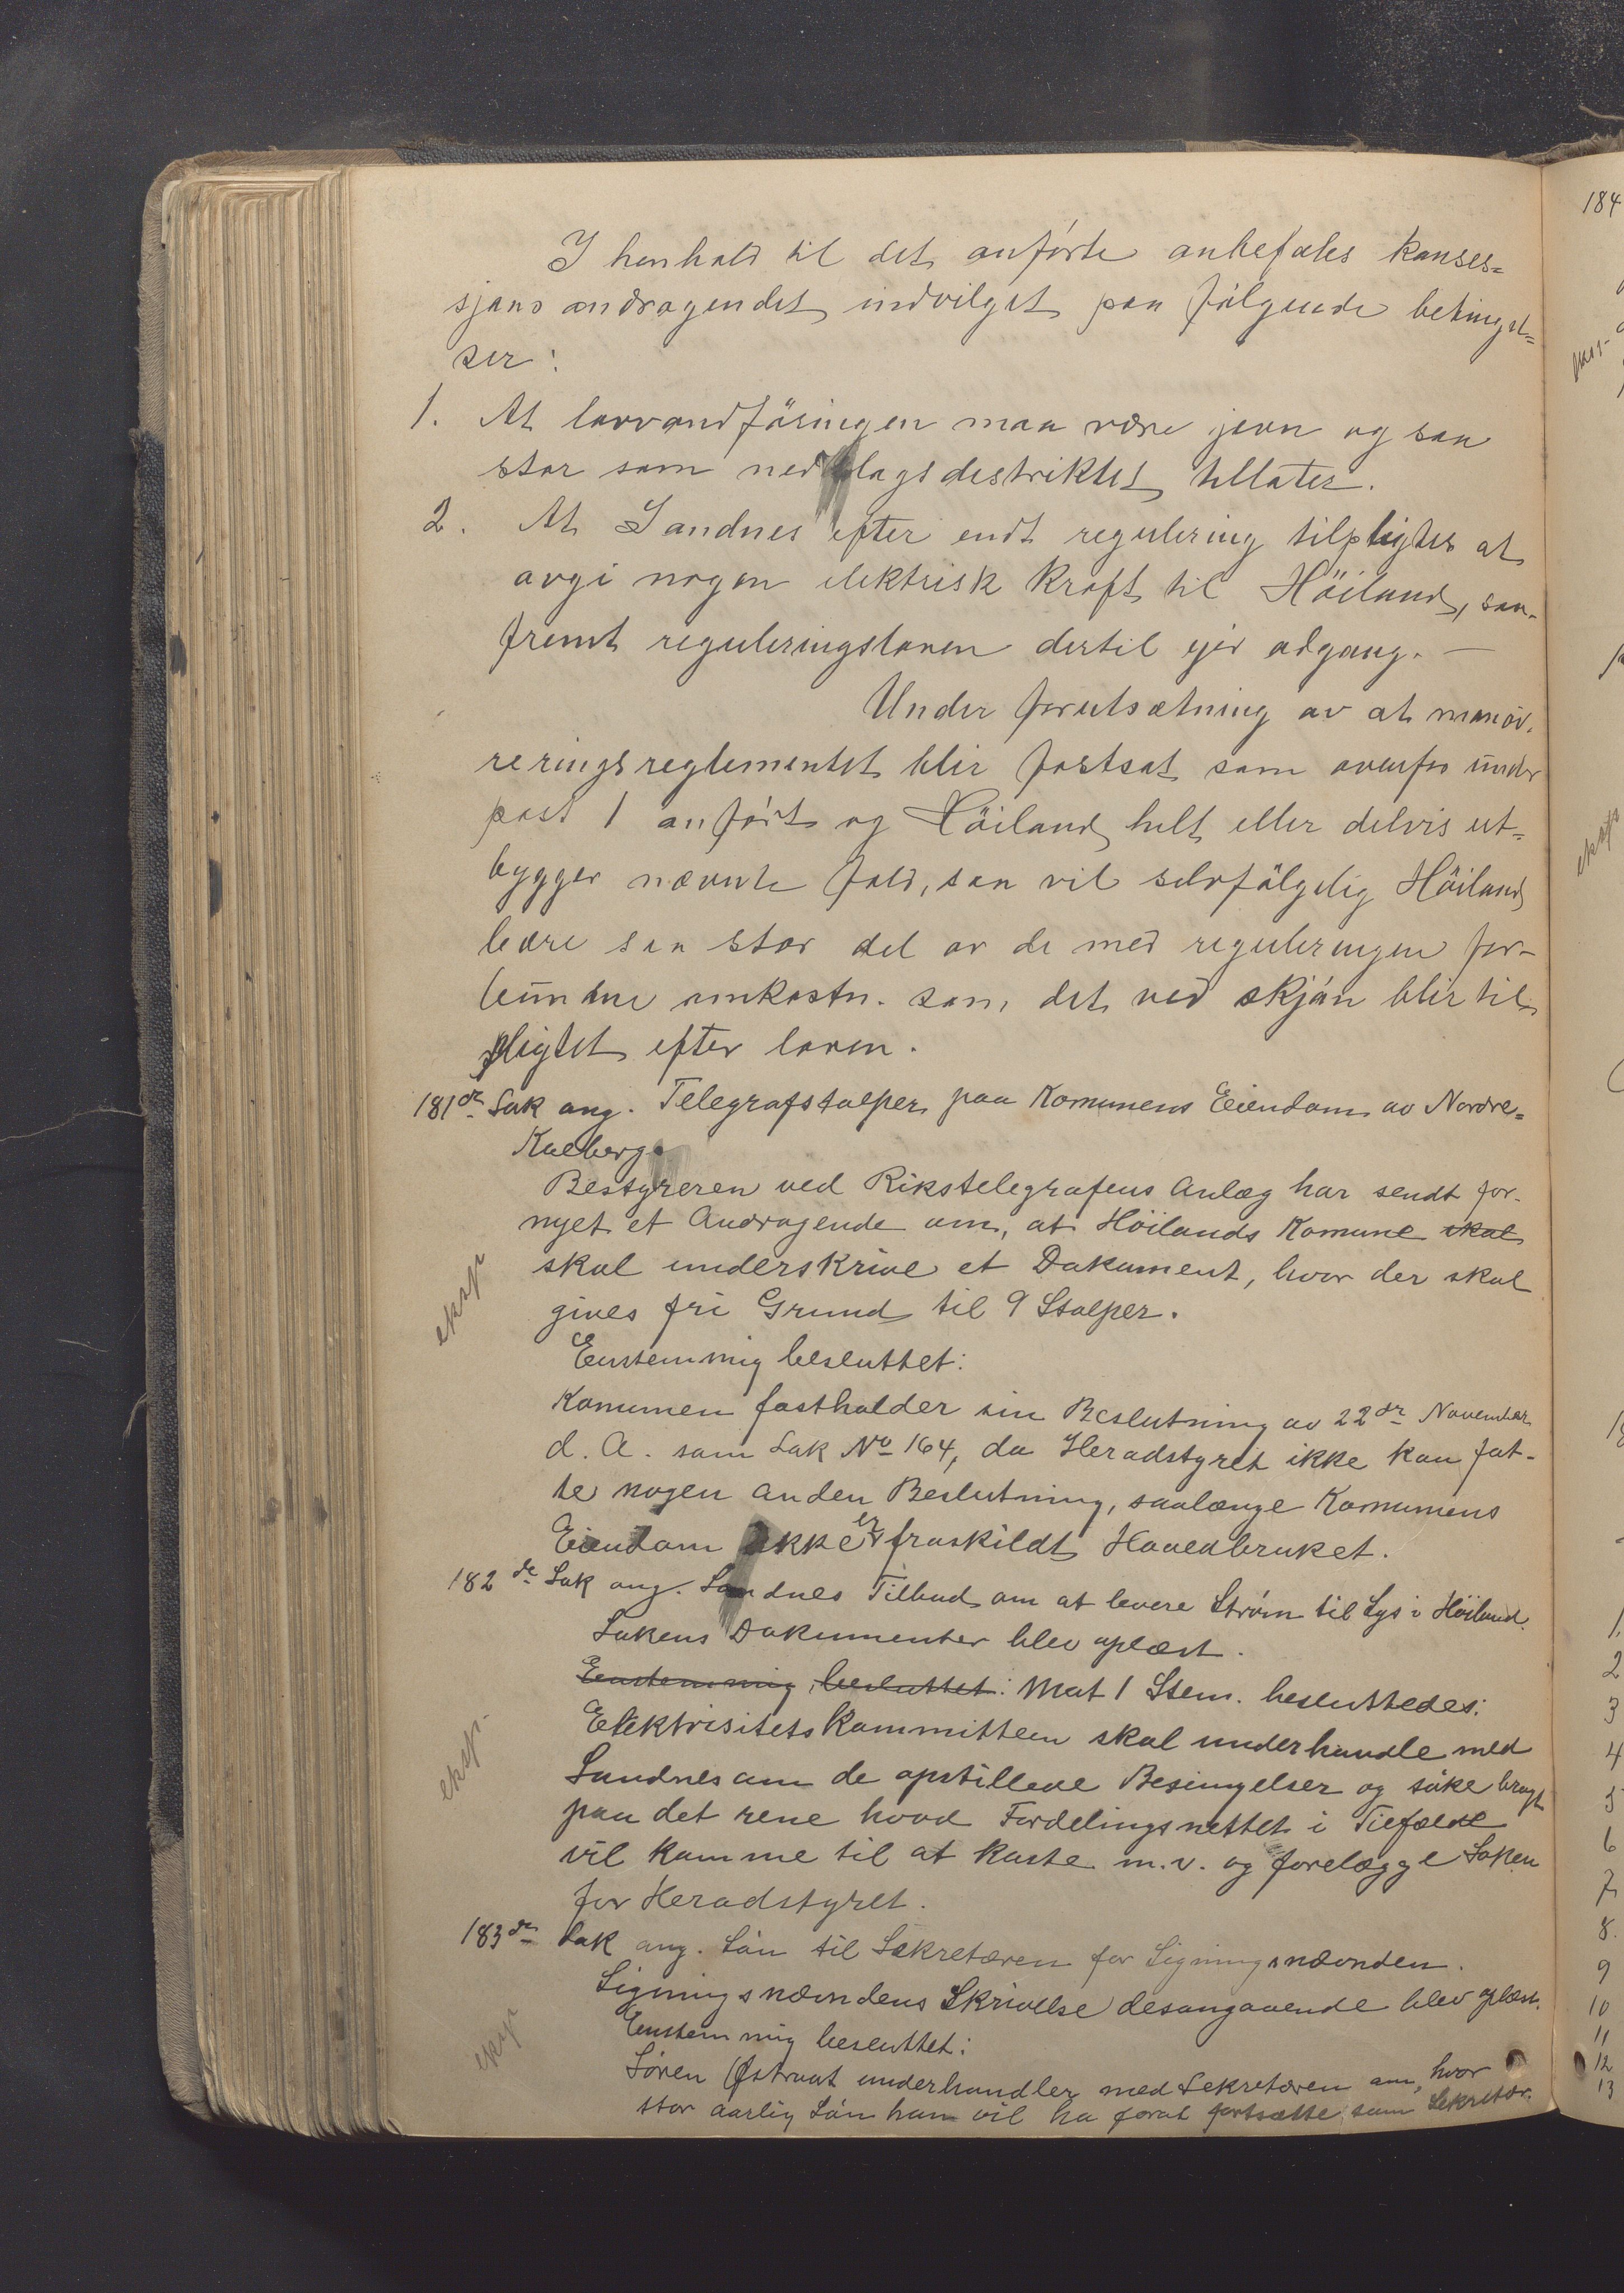 I henhold til det anførte anbefales konses=
sjons andragendet indvilget paa følgende betingel=
ser:
1. At lavvandføringen maa være jevn og saa
stor som nedslagsdestriktet tillater.
2. At Sandnes efter endt regulering tilpligtes at
avgi nogen elektrisk kraft til Höiland, saa-
fremt reguleringsloven dertil gir adgang. —
Under forutsætning av at manöv-
reringsreglementet blir fastsat som ovenfor under
post 1 anført og Höiland helt eller delvis ut-
bygger nævnte fald, saa vil selvfølgelig Höiland
bære saa stor del av de med reguleringen for-
bundne omkostn. som det ved skjön blir til
pligtet efter loven.
181de Sak ang. Telegrafstolper paa Komunens Eiendom av Nordre=
Kalberg.
Bestyreren ved Rikstelegrafens Anlæg har sendt for-
nyet et Andragende om, at Höilands Komune skal
skal underskrive et Dokument, hvor der skal
gives fri Grund til 9 Stolper.
eksp
Enstemmig besluttet:
Komunen fastholder sin Beslutning av 22de November
d. A. som Sak No 164, da Heradstyret ikke kan fat-
te nogen anden Beslutning, saalænge Komunens
Eiendom ikke er fraskildt Hovedbruket.
182de Sak ang. Sandnes Tilbud om at levere Strøm til Lys i Höiland.
Sakens Dokumenter blev oplæst.
Enstemmig besluttet: Mot 1 Stem. besluttedes:
Elektrisitetskommitteen skal underhandle med
eksp.
Sandnes om de opstillede Besingelser og söke bragt
paa det rene hvad Fordelingsnettet i Tilfælde
vil komme til at koste m.v. og forelægge Saken
for Heradstyret.
183de Sak ang. Løn til Sekretæren for Ligningsnævnden.
Ligningsnævndens Skrivelse desangaaende blev oplæst.
eksp
Enstemmig besluttet:
Søren Østraat underhandler med Sekretæren om, hvor
stor aarlig Løn han vil ha forat fortsætte som Sekretær.
184
eksp
1.
2
3
4
5
6
7
8.
9
10
11
12
13